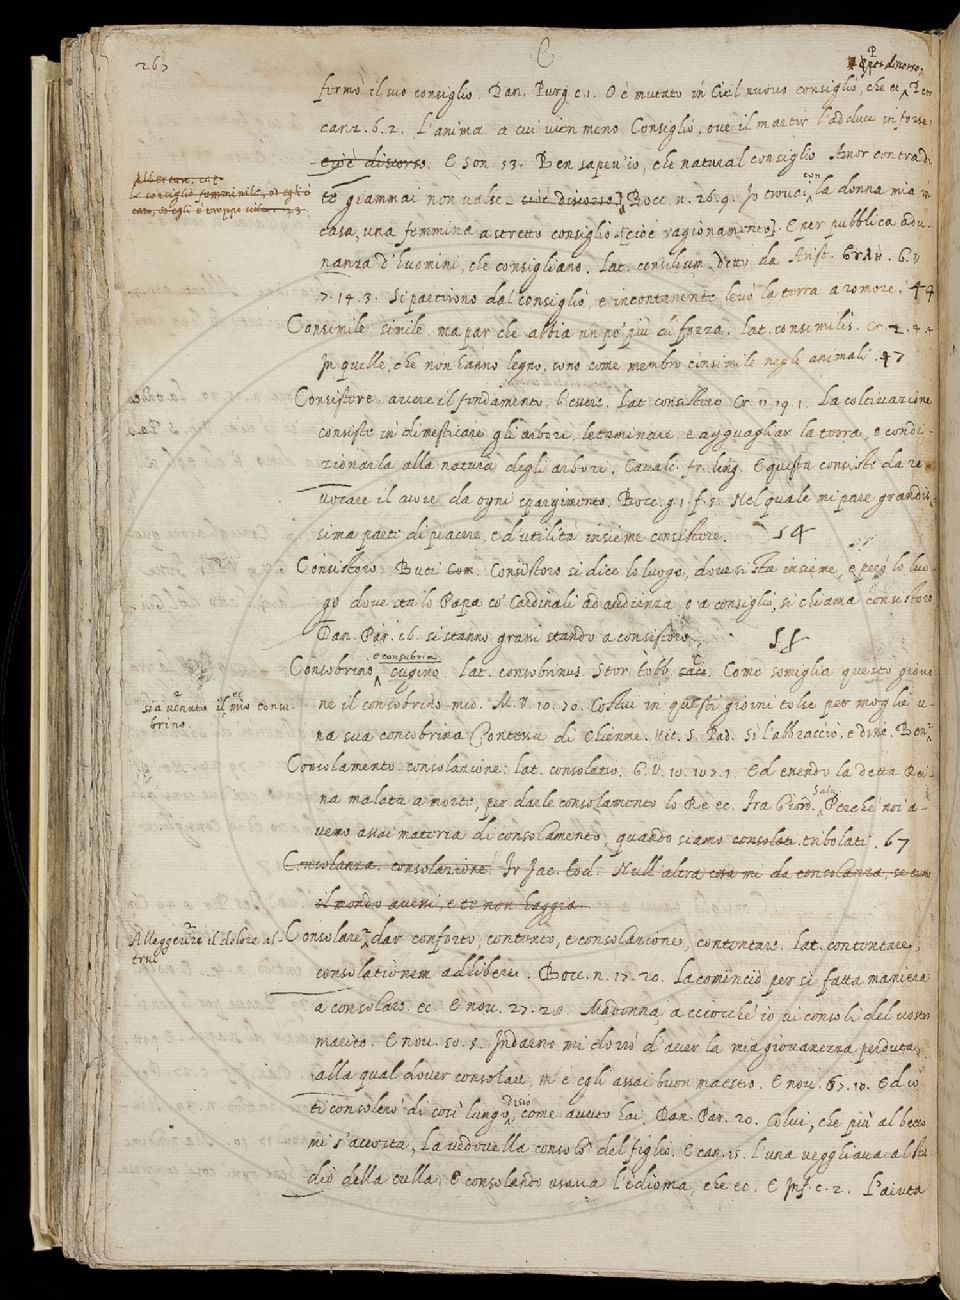 267
C
P per discorso.
fermò il suo consiglio. Dan. Purg. c. 1. O è mutato in Ciel nuovo consiglio, che ec. Petr.
canz. 6. 2. L'anima a cui vien meno Consiglio, ove il martir l'adduce in forse,
cioè discorso. E son. 53. Ben sapev'io, che natural consiglio Amor contra di
te giammai non valse. cioè discorso] Bocc. n. 26. 9. Io trovai con la donna mia in
casa, una femmina a stretto consiglio [cioè ragionamento]. E per pubblica adu-
nanza d'huomini, che consigliano. Lat. consilium. detto da Arist. G. V.
7. 14. 3. Si partirono dal consiglio, e incontanente levò la terra a romore. 44
Albertan. cap.
Lo consiglio femminile, od egli è
caro, od egli è troppo vile. 23.
Consimile simile. ma par che abbia un po' più di forza. Lat. consimilis. Cr. 2. 4. 4
In quelle, che non hanno legno, sono come membro consimile negli animali. 47
Consistere avere il fondamento, l'essere. Lat. consistere Cr. 11. 19. 1. La coltivazione
consiste in dimesticare gli arbori, letaminare, e agguagliar la terra, e condi-
zionarla alla natura degli arbori. Cavalc. fr. ling. E questa consiste da re
vocare il cuore da ogni spargimento. Bocc. g. 1. f. 5. Nel quale mi pare grandis-
sima parte di piacere, e d'utilità insieme consistere. 54
Consistoro Buti Com. Consistoro si dice lo luogo, dove si sta insieme, e però lo luo
go dove sta lo Papa co' Cardinali ad audienza, e a consiglio, si chiama consistoro
Dan. Par. 16. si stanno grassi stando a consistoro. 55
Consobrino, e consobrin cugino. Lat. consobrinus. Stor. Tobb. Come somiglia questo giova
ne il consobrino mio. M. V. 10. 70. Costui in questi giorni tolse per moglie u-
na sua consobrina Contessa di Chienne. Vit. S. Pad. Sì l'abbracciò, e disse. Ben
sia venuto il mio conso-
brino
Consolamento. consolazione. lat. consolatio. G. V. 10. 107. 1. Ed essendo la detta Rei-
na malata a morte, per darle consolamento lo Re ec. Fra Giord. Salv. Perchè noi a-
vemo assai materia di consolamento, quando siamo consolati tribolati. 67
Consolanza. consolazione. Fr. Jac. tod. Null'altra cosa mi da consolanza, se tutto
il mondo avessi, e te non haggia
Consolare, dar conforto, contento, e consolazione, contentare. lat. contentare,
Alleggerire il dolore al-
trui
consolationem adhibere. Bocc. n. 17. 20. La cominciò per sì fatta maniera
a consolare. ec. E nov. 27. 28. Madonna, acciocchè io vi consoli del vostro
marito. E nov. 50. 5. Indarno mi dorrò d'aver la mia giovanezza perduta,
alla qual dover consolare, m'è egli assai buon maestro. E nov. 67. 10. Ed io
ti consolerò di così lungo disio, come avuto hai. Dan. Par. 20. Colui, che più al becco
mi s'accosta, La vedovella consolò del figlio. E can. 15. L'una vegghiava al stu-
dio della culla, E consolando usava l'idioma, che ec. E Inf. c. 2. L'aiuta